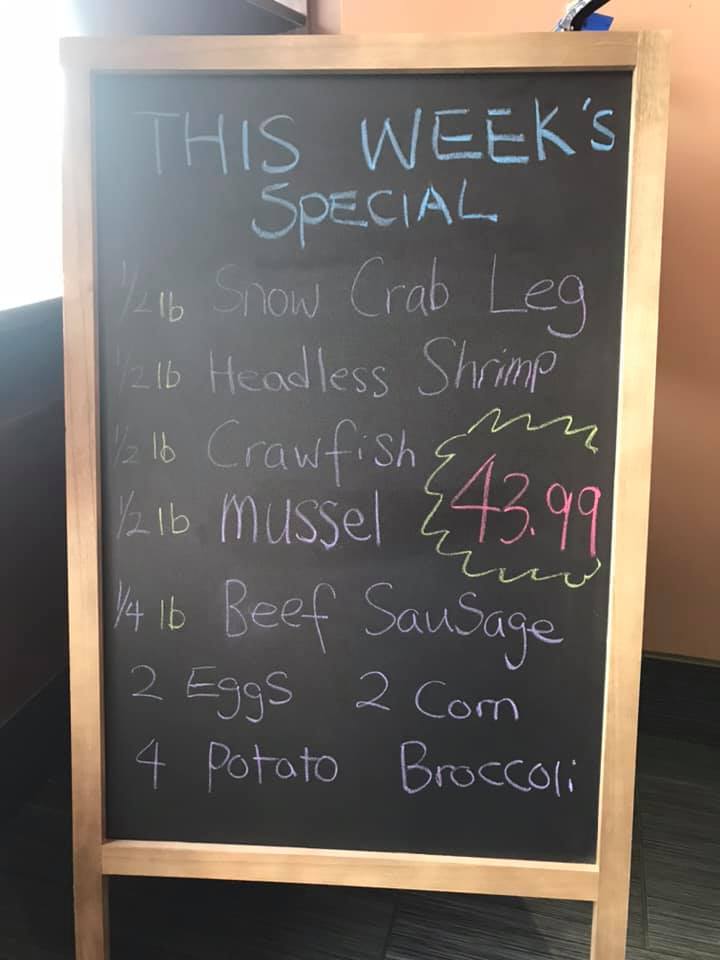 THIS WEEK'S
SPECIAL
1/2 lb Snow Crab Leg
1/2 lb Headless Shrimp
1/2 lb Crawfish
1/2 lb Mussel
43.99
1/4 lb Beef Sausage
2 Eggs 2 Corn
4 Potato Broccoli